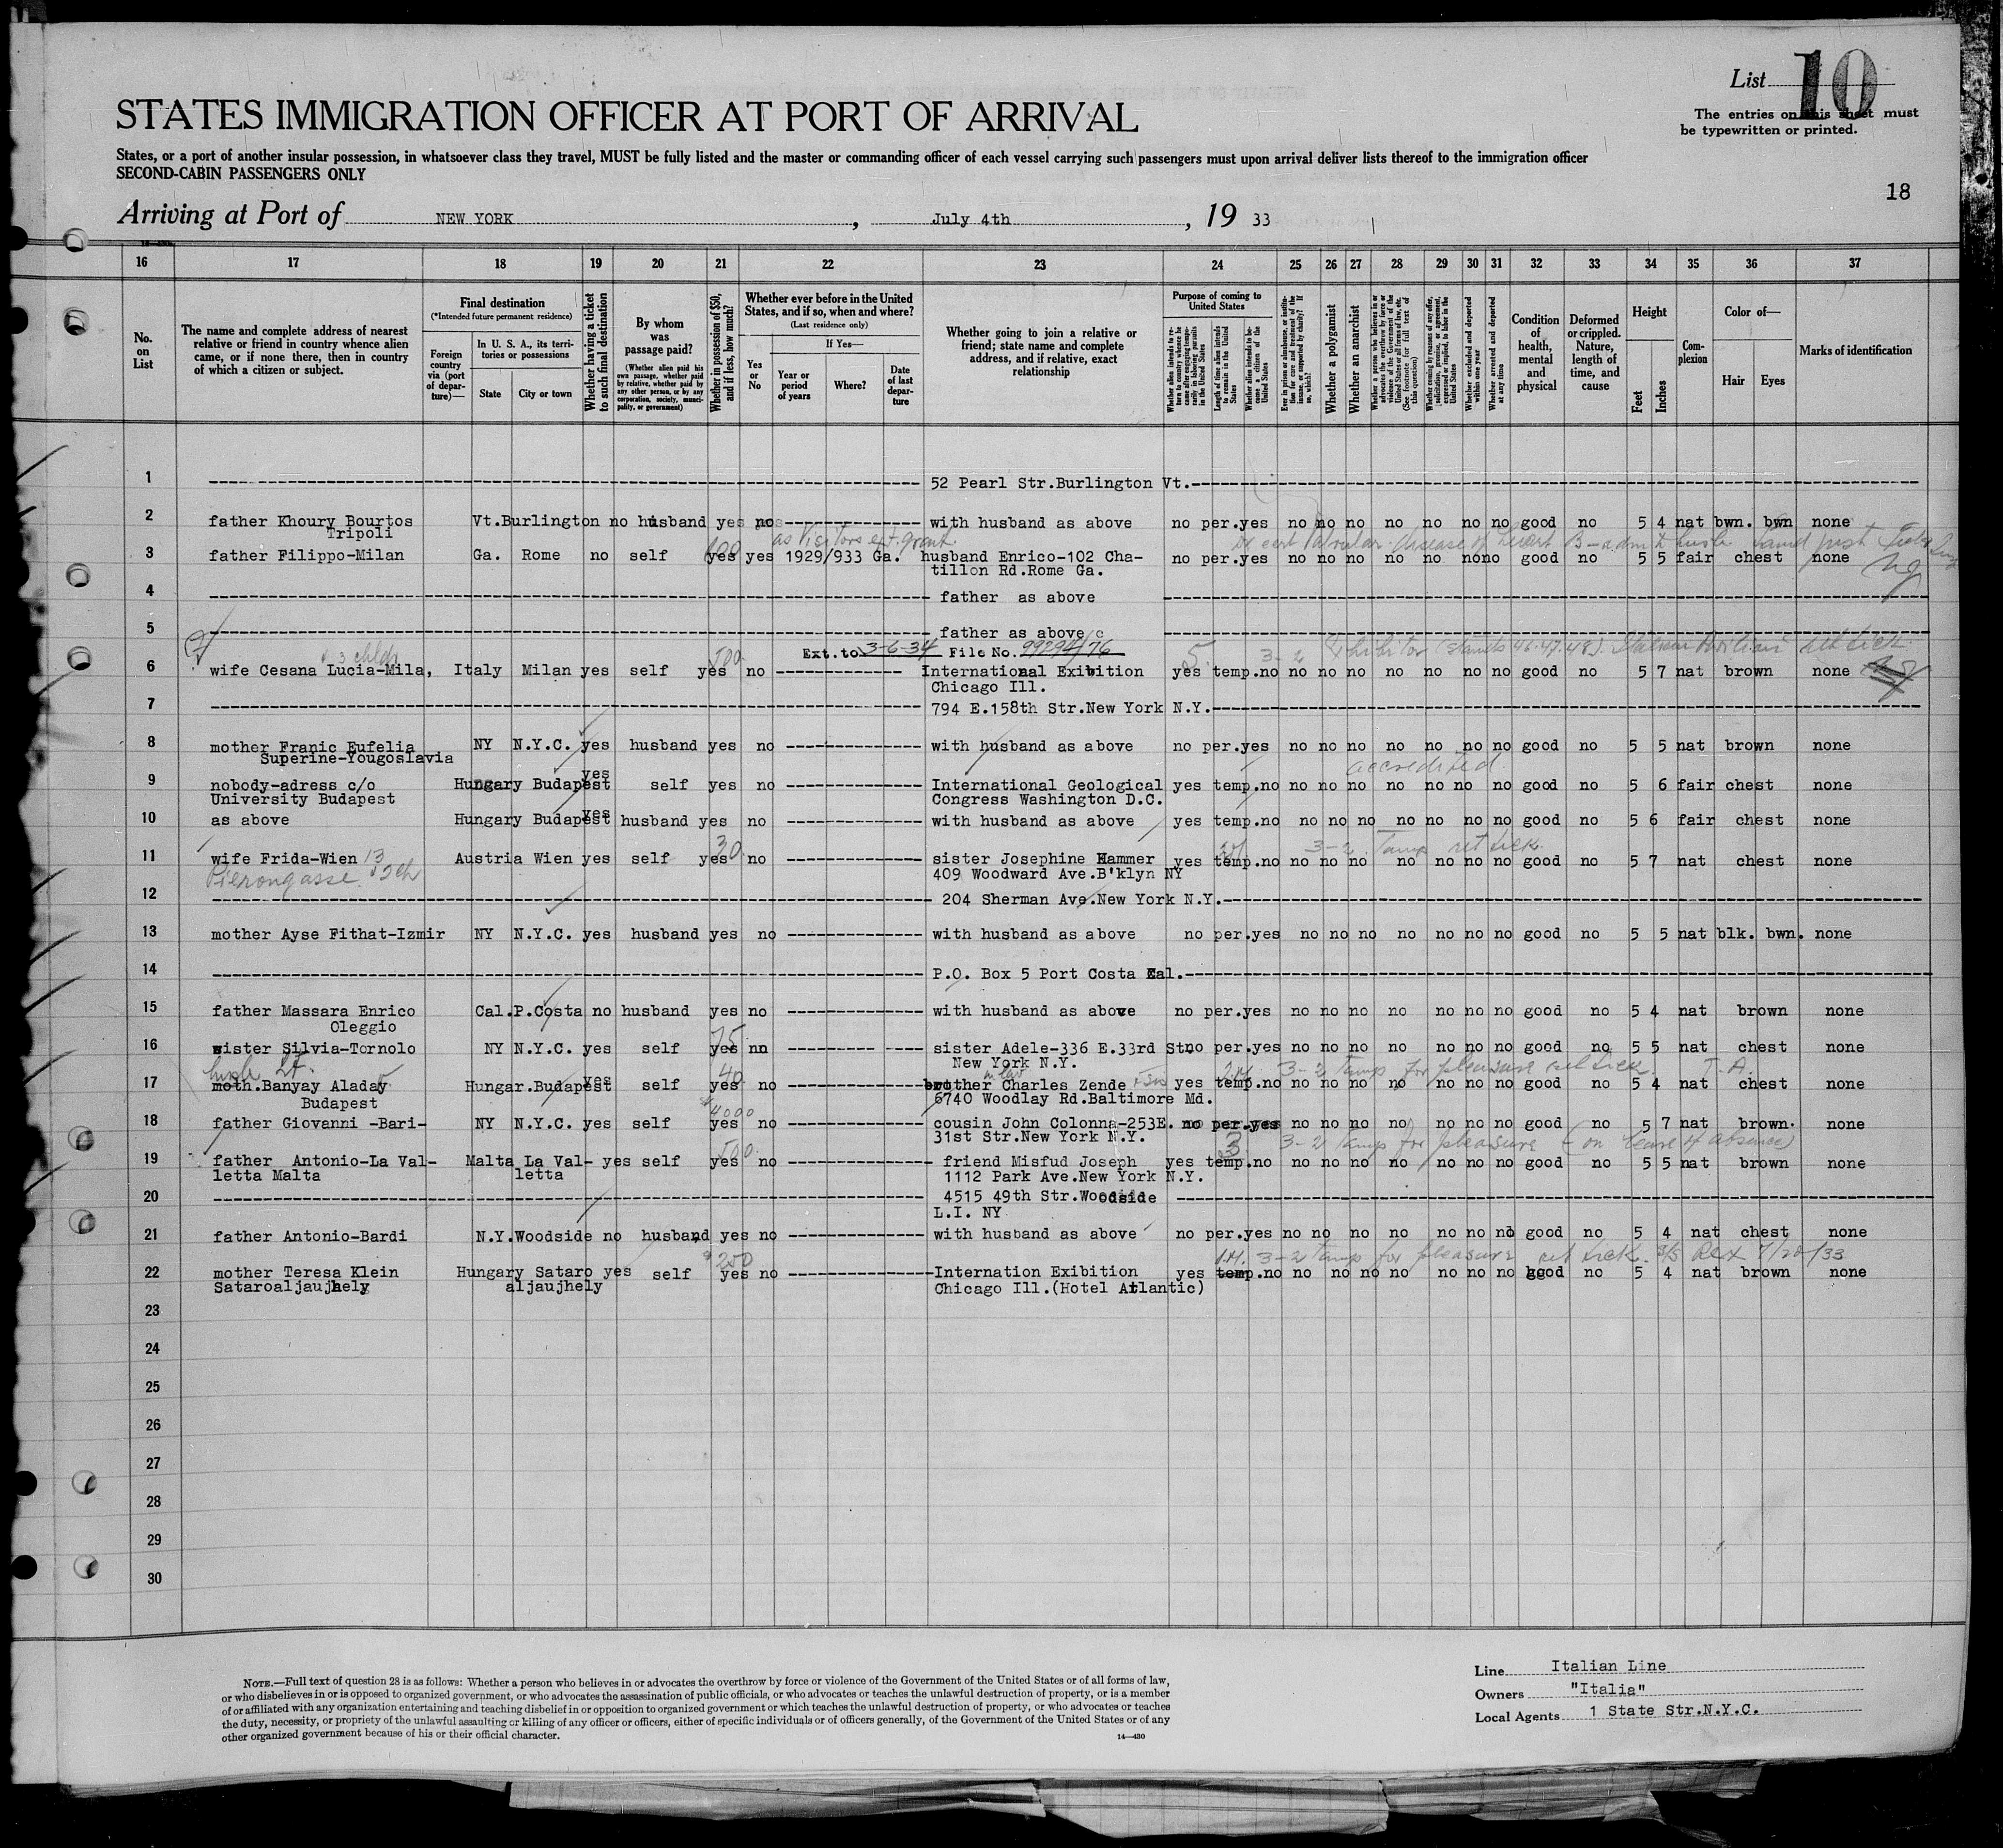 List 10
The entries on this sheet must
be typewritten or printed.
STATES IMMIGRATION OFFICER AT PORT OF ARRIVAL
States, or a port of another insular possession, in whatsoever class they travel, MUST be fully listed and the master or commanding officer of each vessel carrying such passengers must upon arrival deliver lists thereof to the immigration officer
SECOND-CABIN PASSENGERS ONLY
18
Arriving at Port of NEW YORK, July 4th, 19 33
16 17 18 19 20 21 22 23 24 25 26 27 28 29 30 31 32 33 34 35 36 37
No. on List
The name and complete address of nearest relative or friend in country whence alien came, or if none there, then in country of which a citizen or subject.
Final destination
(*Intended future permanent residence)
Foreign country via (port of departure)—
In U. S. A., its territories or possessions
State
City or town
Whether having a ticket to such final destination
By whom was passage paid?
(Whether alien paid his own passage, whether paid by relative, whether paid by any other person, or by any corporation, society, municipality, or government)
Whether in possession of $50, and if less, how much?
Whether ever before in the United States, and if so, when and where?
(Last residence only)
Yes or No
If Yes—
Year or period of years
Where?
Date of last departure
Whether going to join a relative or friend; state name and complete address, and if relative, exact relationship
Purpose of coming to United States
Whether alien intends to return to country whence he came after engaging temporarily in laboring pursuits in the United States
Length of time alien intends to remain in the United States
Whether alien intends to become a citizen of the United States
Ever in prison or almshouse, or institution for care and treatment of the insane, or supported by charity? If so, which?
Whether a polygamist
Whether an anarchist
Whether a person who believes in or advocates the overthrow by force or violence of the Government of the United States or all forms of law, etc. (See footnote for full text of this question)
Whether coming by reason of any offer, solicitation, promise, or agreement, expressed or implied, to labor in the United States
Whether excluded and deported within one year
Whether arrested and deported at any time
Condition of health, mental and physical
Deformed or crippled. Nature, length of time, and cause
Height
Feet
Inches
Complexion
Color of—
Hair
Eyes
Marks of identification
1 52 Pearl Str.Burlington Vt.
2 father Khoury Bourtos Vt.Burlington no husband yes no with husband as above no per.yes no no no no no no no good no 5 4 nat bwn. bwn none
Tripoli
as visitors ext. grant
3 father Filippo-Milan Ga. Rome no self yes yes 1929/933 Ga. husband Enrico-102 Cha- no per.yes no no no no no nono good no 5 5 fair chest none
tillon Rd.Rome Ga.
4 father as above
5 father as above
Ext. to 3-6-34 File No. 99294/76
6 wife Cesana Lucia-Mila, Italy Milan yes self yes no International Exibition yes temp.no no no no no no no no good no 5 7 nat brown none
Chicago Ill.
7 794 E.158th Str.New York N.Y.
8 mother Franic Eufelia NY N.Y.C. yes husband yes no with husband as above no per.yes no no no no no no no good no 5 5 nat brown none
Superine-Yougoslavia
accredited
9 nobody-adress c/o Hungary Budapest yes self yes no International Geological yes temp.no no no no no no no no good no 5 6 fair chest none
University Budapest Congress Washington D.C.
10 as above Hungary Budapest yes husband yes no with husband as above yes temp.no no no no no no no no good no 5 6 fair chest none
30 3-2 Temp ret tick.
11 wife Frida-Wien 13 Austria Wien yes self yes no sister Josephine Hammer yes temp.no no no no no no no no good no 5 7 nat chest none
409 Woodward Ave.B'klyn NY
12 204 Sherman Ave.New York N.Y.
13 mother Ayse Fithat-Izmir NY N.Y.C. yes husband yes no with husband as above no per.yes no no no no no no no good no 5 5 nat blk. bwn. none
14 P.O. Box 5 Port Costa Cal.
15 father Massara Enrico Cal.P.Costa no husband yes no with husband as above no per.yes no no no no no no no good no 5 4 nat brown none
Oleggio
75
16 sister Silvia-Tornolo NY N.Y.C. yes self yes nn sister Adele-336 E.33rd St. no per.yes no no no no no no no good no 5 5 nat chest none
New York N.Y.
40 in law 3-2 Temp for pleasure ret tick.
17 moth.Banyay Aladar Hungar.Budapest yes self yes no brother Charles Zende yes temp.no no no no no no no no good no 5 4 nat chest none
Budapest 6740 Woodlay Rd.Baltimore Md.
$4000
18 father Giovanni -Bari- NY N.Y.C. yes self yes no cousin John Colonna-253E. no per.yes no no no no no no no good no 5 7 nat brown. none
31st Str.New York N.Y.
500. 3 3-2 Temp for pleasure (on leave of absence)
19 father Antonio-La Val- Malta La Val- yes self yes no friend Misfud Joseph yes temp.no no no no no no no no good no 5 5 nat brown none
letta Malta letta 1112 Park Ave.New York N.Y.
20 4515 49th Str.Woodside
L.I. NY
21 father Antonio-Bardi N.Y.Woodside no husband yes no with husband as above no per.yes no no no no no no no good no 5 4 nat chest none
$250 3-2 Temp for pleasure ret tick. S/S Rex 7/20/33
22 mother Teresa Klein Hungary Sataro yes self yes no Internation Exibition yes temp.no no no no no no no no good no 5 4 nat brown none
Sataroaljaujhely aljaujhely Chicago Ill.(Hotel Atlantic)
23
24
25
26
27
28
29
30
NOTE.—Full text of question 28 is as follows: Whether a person who believes in or advocates the overthrow by force or violence of the Government of the United States or of all forms of law,
or who disbelieves in or is opposed to organized government, or who advocates the assassination of public officials, or who advocates or teaches the unlawful destruction of property, or is a member
of or affiliated with any organization entertaining and teaching disbelief in or opposition to organized government or which teaches the unlawful destruction of property, or who advocates or teaches
the duty, necessity, or propriety of the unlawful assaulting or killing of any officer or officers, either of specific individuals or of officers generally, of the Government of the United States or of any
other organized government because of his or their official character.
14—430
Line Italian Line
Owners "Italia"
Local Agents 1 State Str.N.Y.C.